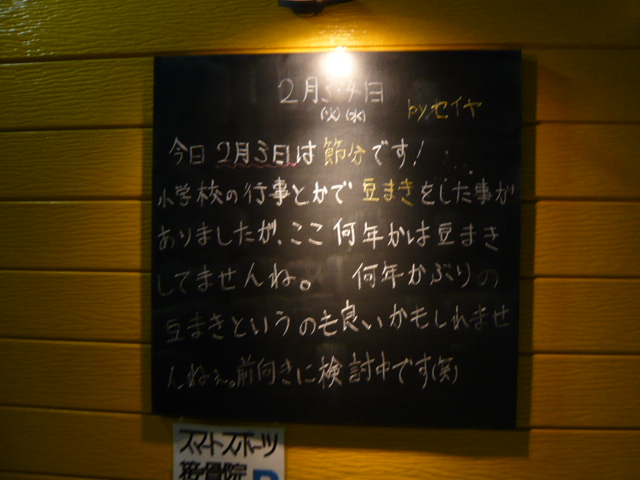 2月3・4日
(火)(水)
byセイヤ
今日2月3日は節分です!
小学校の行事とかで豆まきをした事が
ありましたが、ここ何年かは豆まき
してませんね。 何年かぶりの
豆まきというのも良いかもしれませ
んねぇ。前向きに検討中です(笑)
スマートスポーツ
接骨院
P